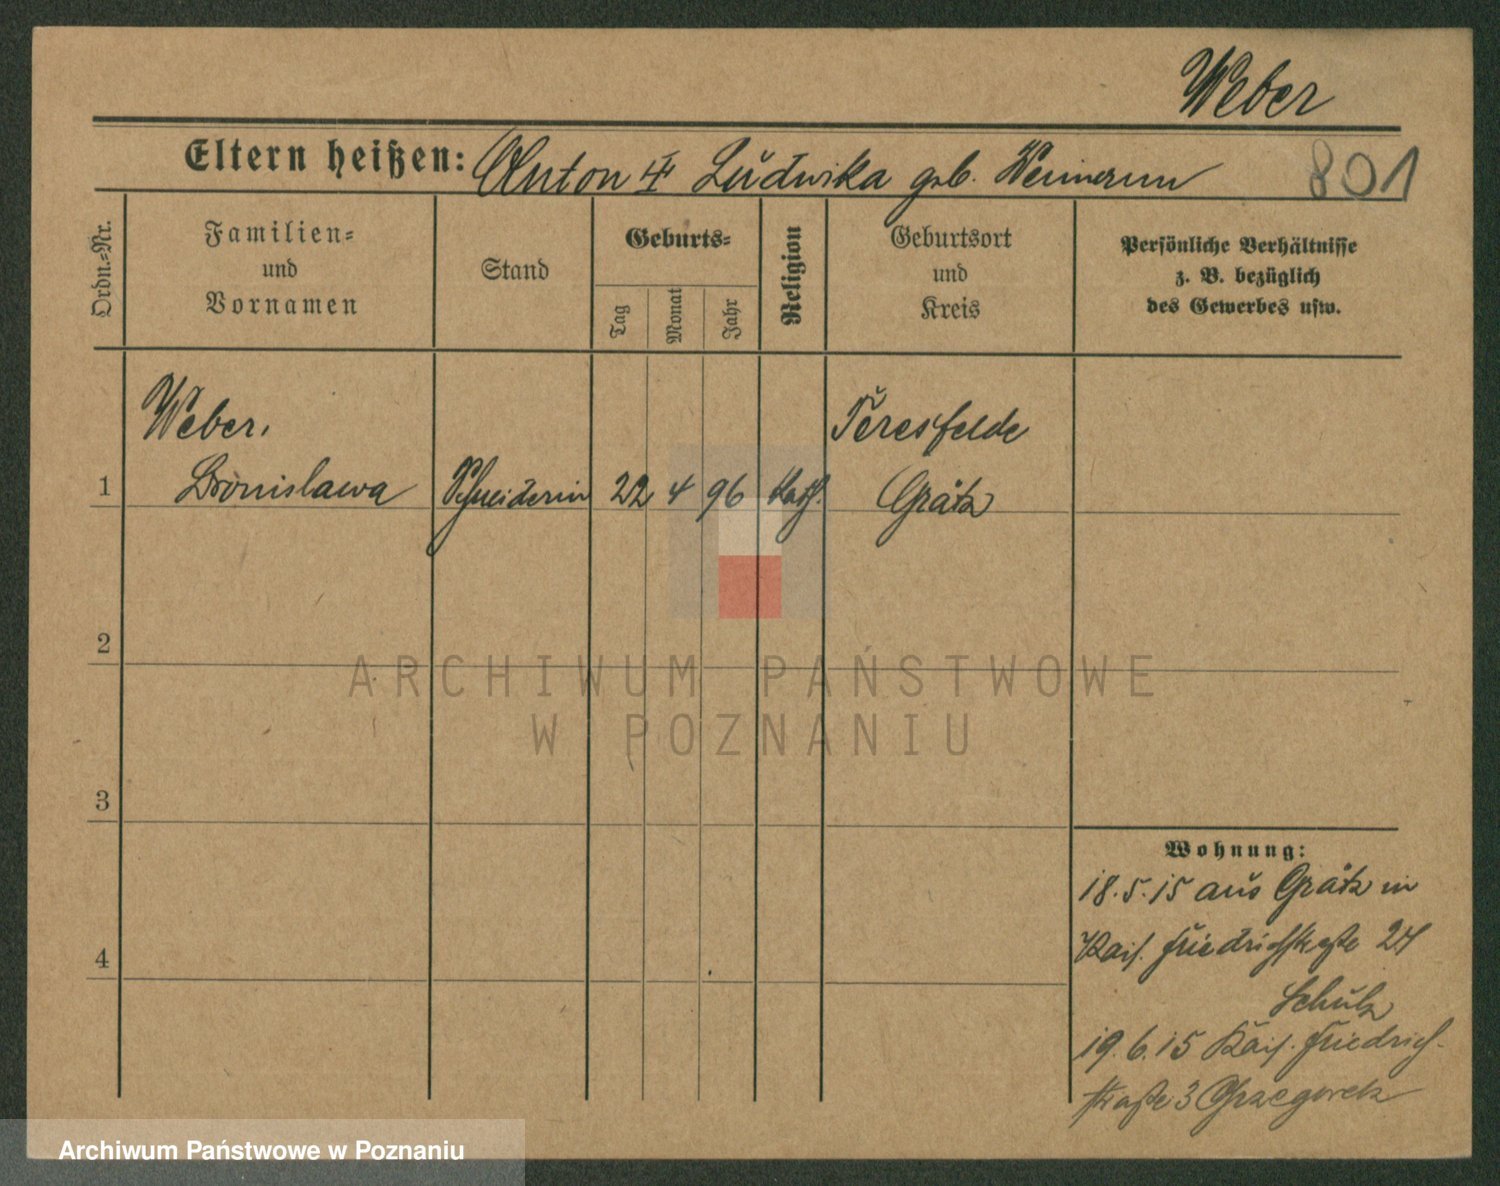 Weber
Eltern heißen: Anton Ludwika geb.
801
Ordn.-Nr.
Familien-
und
Vornamen
Stand
Geburts-
Tag
Monat
Jahr
Religion
Geburtsort
und
Kreis
Persönliche Verhältnisse
z. B. bezüglich
des Gewerbes usw.
Weber,
1 Bronislawa Schneiderin 22 4 96 Kath.
Teresfelde
Grätz
2
3
4
Wohnung:
18.5.15 aus Grätz in
Kais. Friedrichstraße 24
Schulz
19.6.15 Kais. Friedrich-
straße 3 Grzegorek
ARCHIWUM PAŃSTWOWE
W POZNANIU
Archiwum Państwowe w Poznaniu